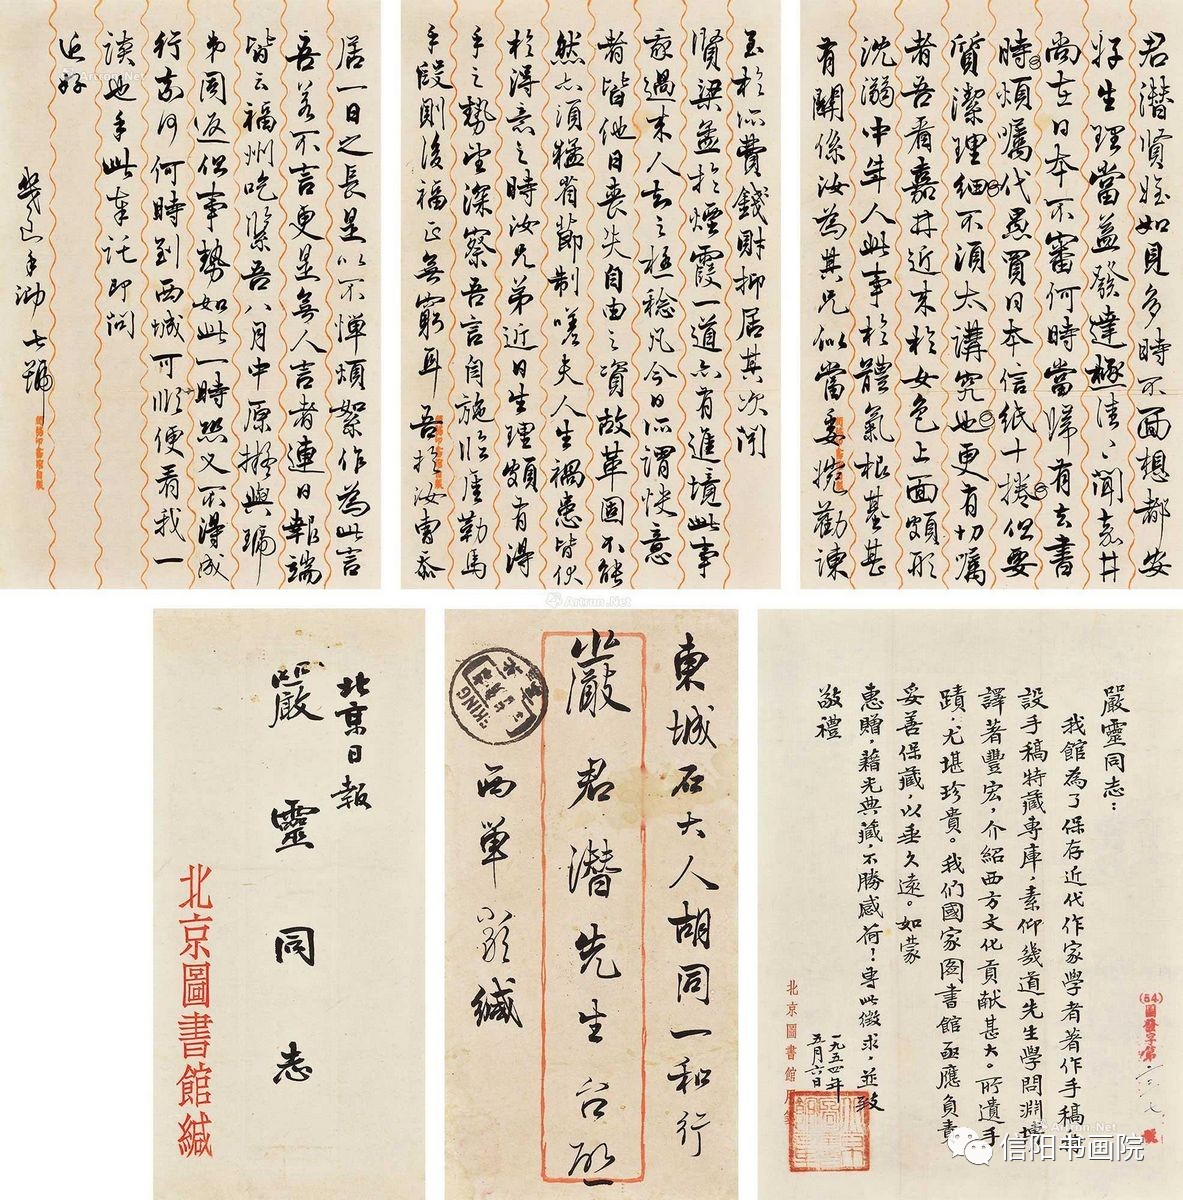 君潛賢姪如見多時不面想都安
好生理當益發達極清清聞嘉井
尚在日本不審何時當歸有去書
時煩囑代愚買日本信紙十捲但要
質潔理細不須太講究也更有切囑
者吾看嘉井近來於女色上面頗形
沈溺中年人此事於體氣根基甚
有關係汝為其兄似當委婉勸諫
至於所費錢財抑居其次聞
賢梁孟於煙霞一道亦有進境此事
過來人去之極稔凡今日所謂快意
者皆他日喪失自由之資故革固不能
然亦須猛省節制嗟夫人生禍患皆伏
於得意之時汝兄弟近日生理頗有得
手之勢望深察吾言自施臨崖勒馬
手段則後福正無窮耳吾於汝曹忝
居一日之長是以不憚煩絮作為此言
吾若不言更是無人言者連日報端
皆云福州吃緊吾八月中原擬與瑞
弟同返但事勢如此一時恐又不得成
行奈何何時到西城可順便看我一
談也手此奉託即問
近好
幾道手泐 七號
嚴靈同志：
我館為了保存近代作家學者著作手稿書
設手稿特藏專庫。素仰幾道先生學問淵博
譯著豐宏，介紹西方文化貢献甚大。所遺手
蹟，尤堪珍貴。我们國家图書館亟應負責
妥善保藏，以垂久遠。如蒙
惠贈，藉光典藏，不勝感荷！專此徵求，並致
敬禮
一九五四年
五月六日
北京圖書館
(54)圖發字第
東城石大人胡同一和行
嚴君潛先生台啟
西單嚴緘
KING
北京日報
嚴靈同志
北京圖書館緘
Artron.Net
信阳书画院